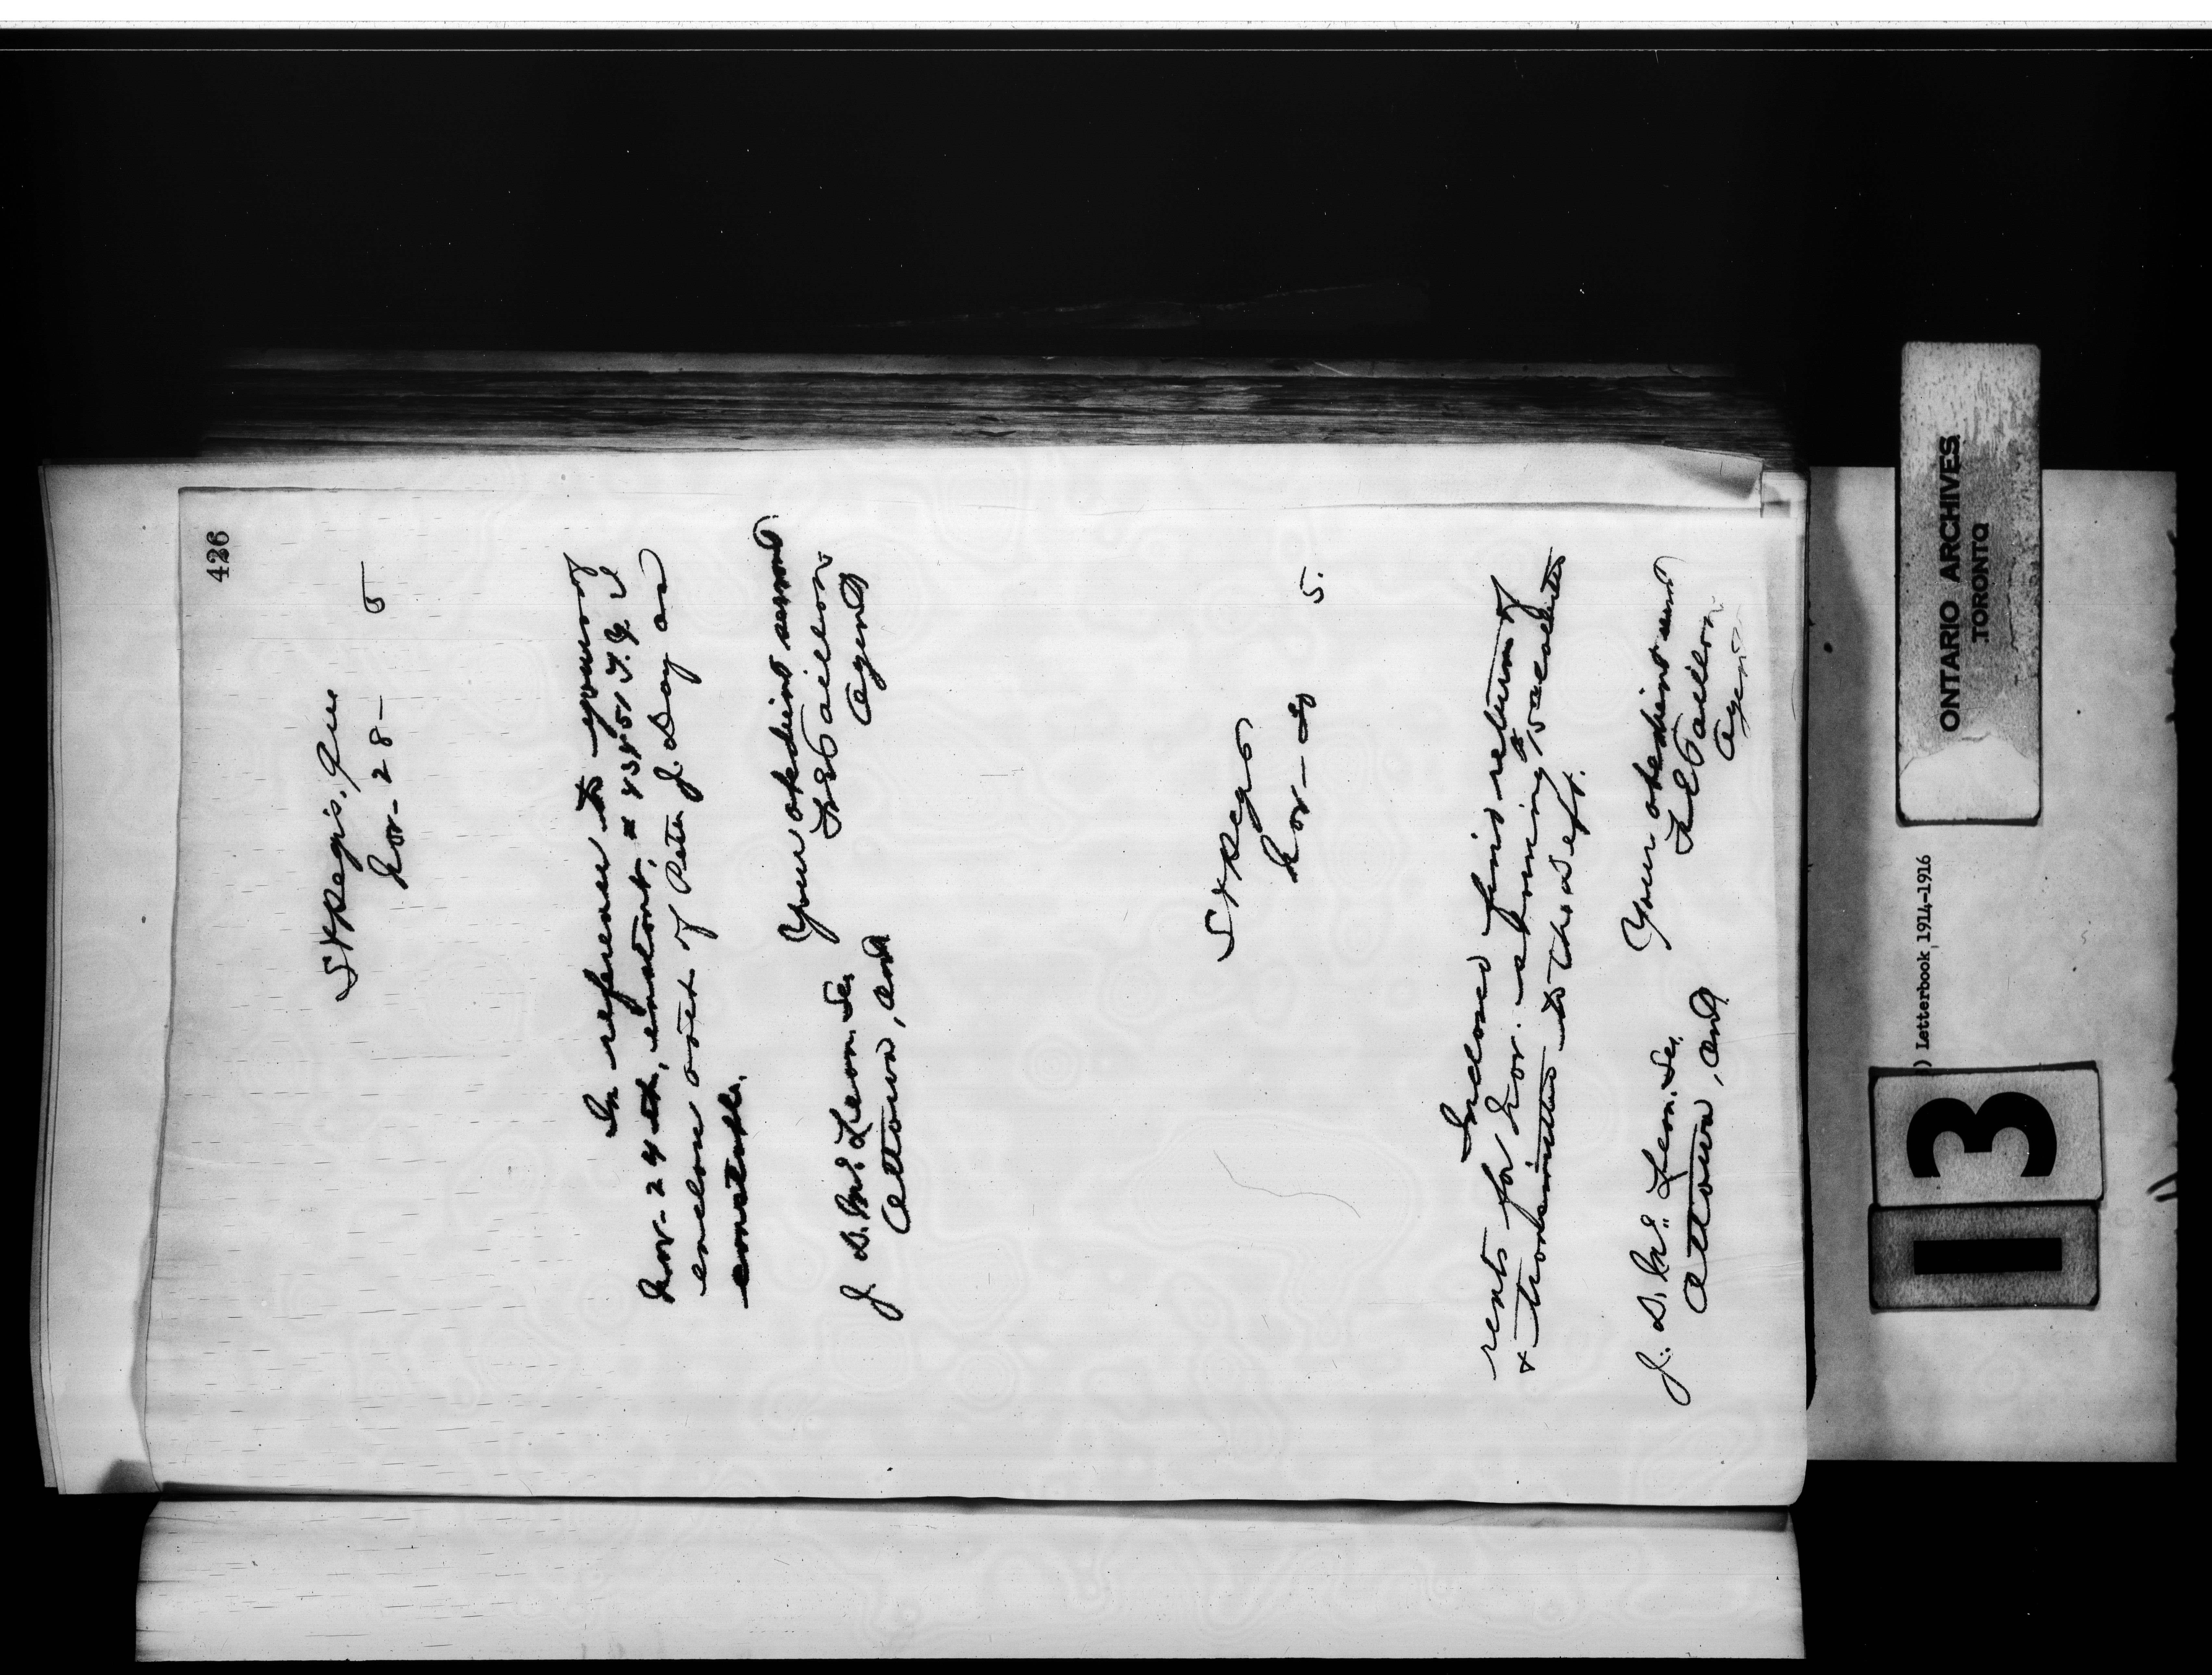 426
St Regis, Que
Nov- 28- 5
In reference to yours of
Nov- 24th, instant, # 43451 T.G. I
enclose acct of Peter J. Day as
constable.
Your obedient servant
F E Taillon
Agent
J. D. McLean. Sec,
Ottawa, Ont
St Regis
Nov- 5.
Inclosed find return of
rents for Nov. showing &
transmitted to the Dept.
Your obedient servt
F E Taillon
Agent
J. D. McLean. Sec,
Ottawa, Ont
ONTARIO ARCHIVES
TORONTO
) Letterbook 1914-1916
13